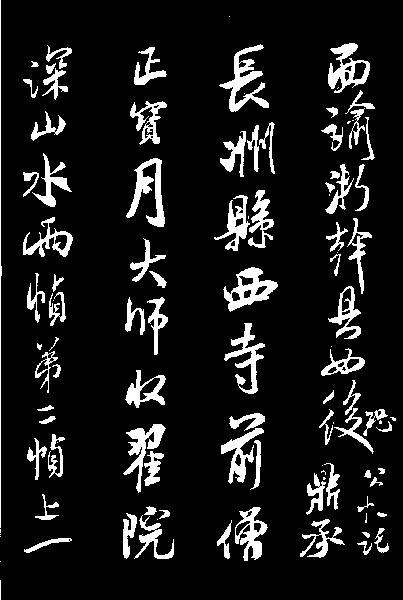 面諭浙幹具如後
恐公忙託
鼎承
長洲縣西寺前僧
正寶月大師收翟院
深山水兩幀第二幀上一